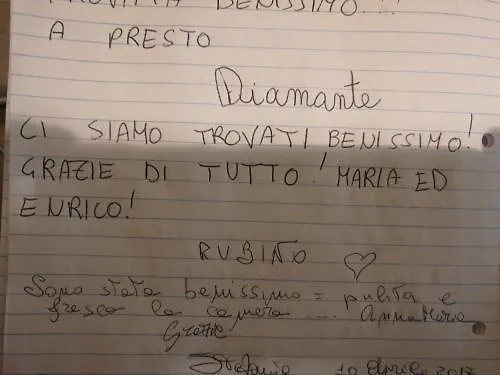 TROVATTA BENISSIMO...
A PRESTO
Diamante
CI SIAMO TROVATI BENISSIMO!
GRAZIE DI TUTTO! MARIA ED
ENRICO!
RUBINO
Sono stata benissimo = pulita e
fresca la camera .... AnnaMaria
Grazie
Stefania 10 Aprile 2017